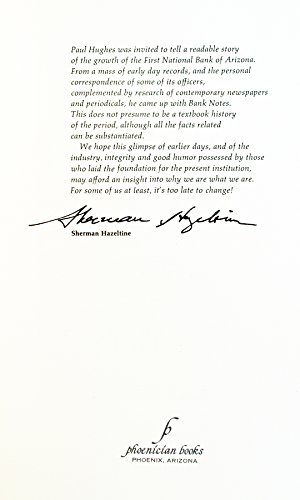 Paul Hughes was invited to tell a readable story
of the growth of the First National Bank of Arizona.
From a mass of early day records, and the personal
correspondence of some of its officers,
complemented by research of contemporary newspapers
and periodicals, he came up with Bank Notes.
This does not presume to be a textbook history
of the period, although all the facts related
can be substantiated.
We hope this glimpse of earlier days, and of
the industry, integrity and good humor possessed by those
who laid the foundation for the present institution,
may afford an insight into why we are what we are.
For some of us at least, it's too late to change!
Sherman Hazeltine
Sherman Hazeltine
phoenician books
PHOENIX, ARIZONA